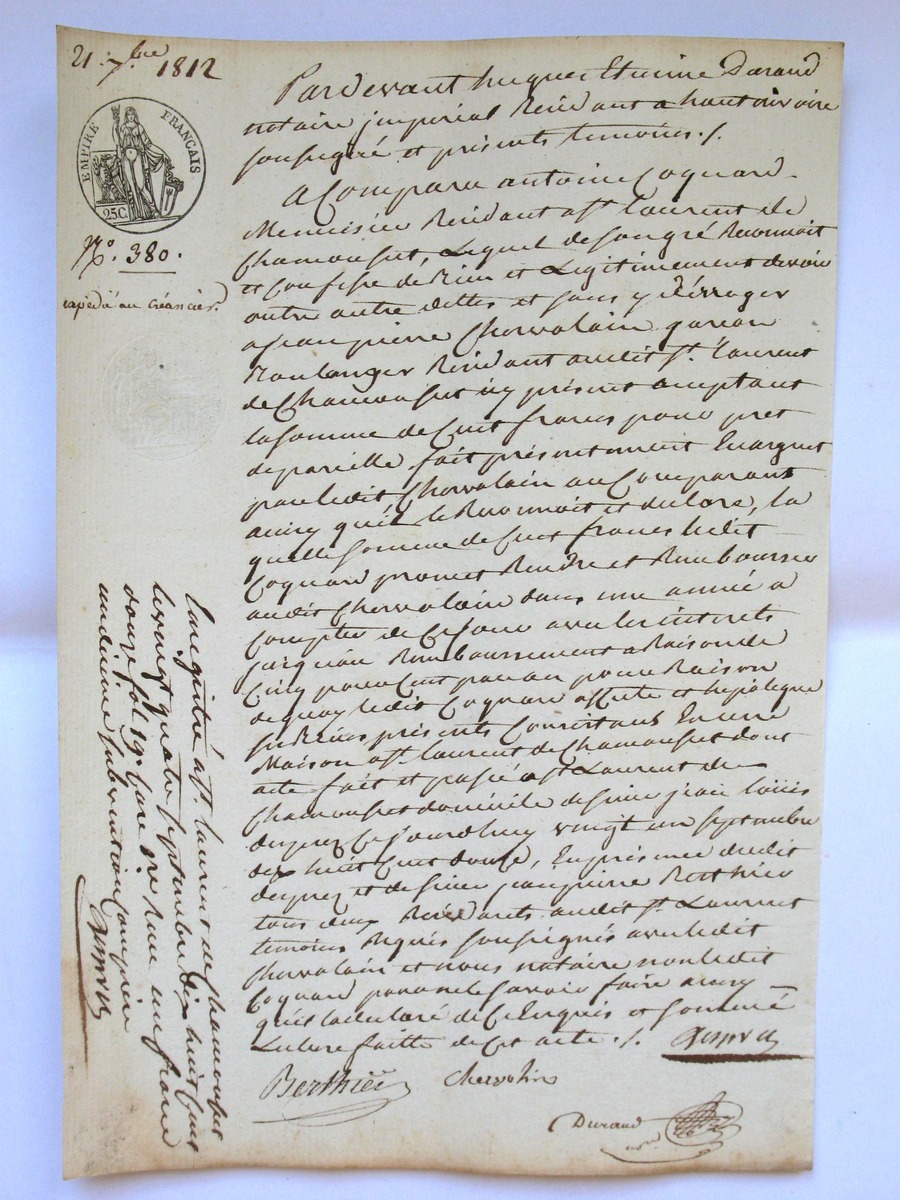 21. 7.bre 1812
EMPIRE FRANÇAIS
25C
No. 380.
expédié au créancier.
Pardevant hugues Etienne Durand
notaire jmperial Residant a hauterivoire
soussigné et présents temoins ./.
A Comparu antoine Coquard
Menuisier Residant a st. laurent de
Chamousset, Lequel de son gré Reconnoit
et Confesse de Bien et Legitimement devoir
outre autre dettes et sans y déroger
a jean pierre Chervolain garcon
Boulanger Residant audit st. laurent
de Chamousset icy présent acceptant
la somme de Cent francs pour pret
de pareille fait présentement En argent
par ledit Chervolain au Comparant
ainsy qu'il le Reconnoit et declare, la
quelle somme de Cent francs ledit
Coquard promet Rendre et Rembourser
audit Chervolain dans une année a
Compter de Ce jour avec les interets
jusquau Remboursement a Raison de
Cinq pour Cent par an pour Raison
de quoy ledit Coquard affecte et hipoteque
ses Biens présents Consistants En une
Maison a st. laurent de Chamousset dont
acte fait et passé a st. Laurent de
Chamousset domicile de sieur jean louis
Cejourdhuy vingt un septembre
dix huit Cent douze, En présence dudit
et de sieur jean pierre Berthier
tous deux Residants audit st. Laurent
temoins Requis soussignés avec ledit
Chervolain et nous notaire non ledit
Coquard pour ne le savoir faire ainsy
qu'il la declaré de Ce Enquis et sommé
Lecture faitte de Cet acte ./.
Berthier Chervolin
Durand
not.re
Enregistré a st. laurent de chamousset
le vingt quatre septembre dix huit Cent
douze fol. 19. Case Reçu un franc
un decime subvention Comprise